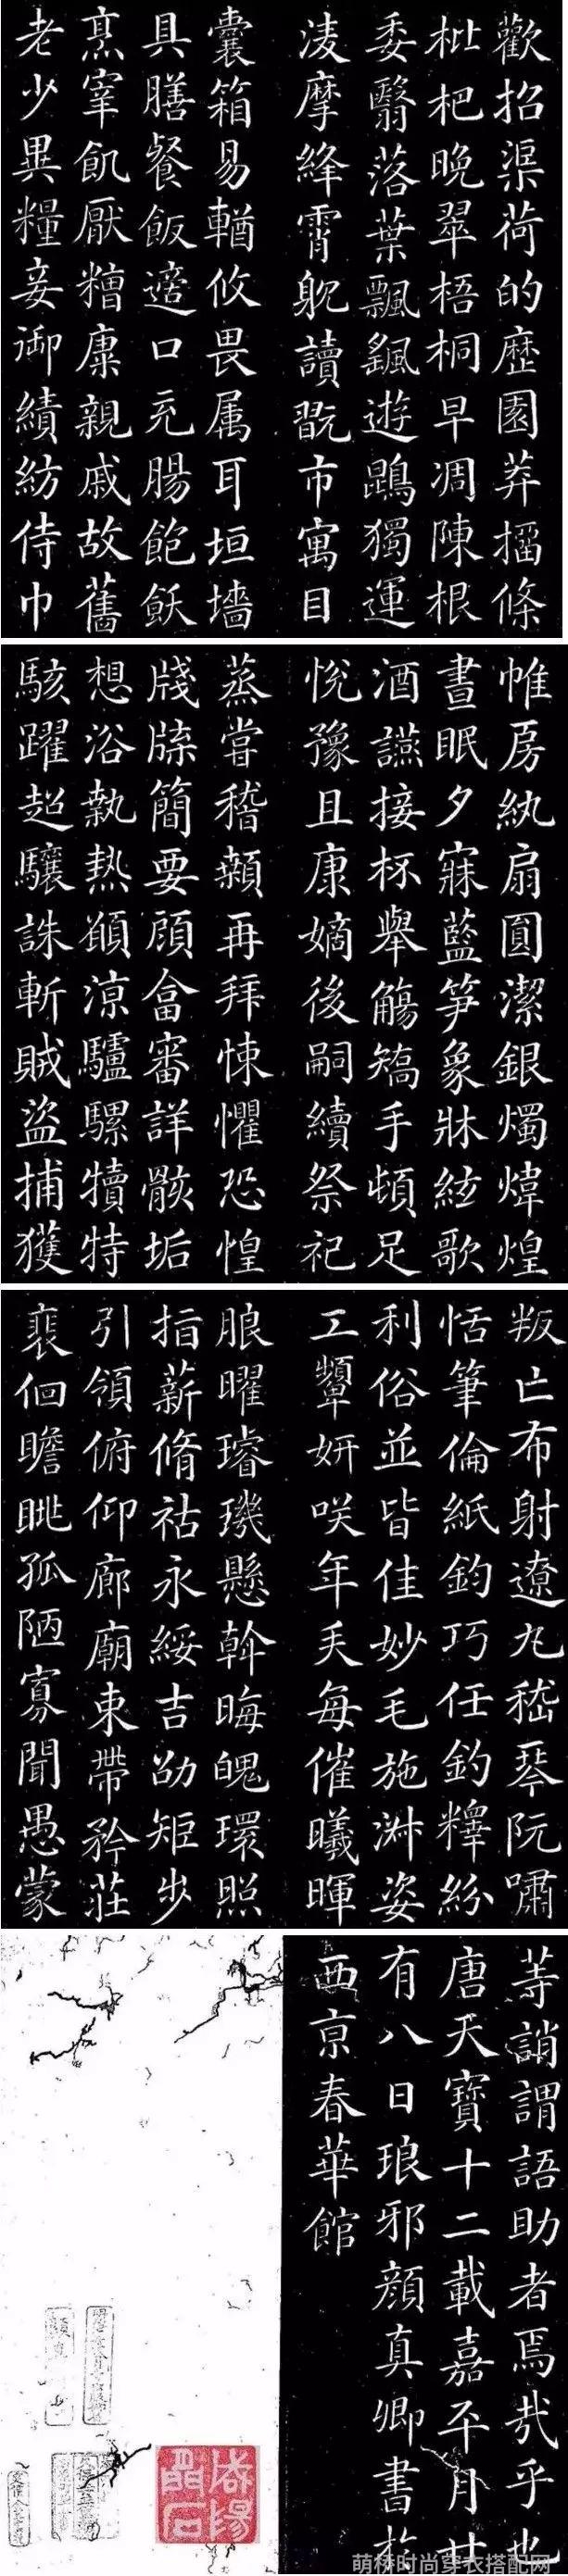 歡招渠荷的歷園莽㨨條
枇杷晚翠梧桐早凋陳根
委翳落葉飄颻遊鵾獨運
凌摩絳霄躭讀翫市寓目
囊箱易輶攸畏属耳垣墻
具膳餐飯適口充腸飽飫
烹宰飢厭糟糠親戚故舊
老少異糧妾御績紡侍巾
帷房紈扇圓潔銀燭煒煌
晝眠夕寐藍笋象牀絃歌
酒讌接杯舉觴矯手頓足
悅豫且康嫡後嗣續祭祀
蒸嘗稽顙再拜悚懼恐惶
牋牒簡要顧畣審詳骸垢
想浴執熱顧涼驢騾犢特
駭躍超驤誅斬賊盜捕獲
叛亡布射遼丸嵇琴阮嘯
恬筆倫紙鈞巧任釣釋紛
利俗並皆佳妙毛施淑姿
工顰妍咲年矢每催曦暉
朗曜璿璣懸斡晦魄環照
指薪脩祜永綏吉劭矩步
引領俯仰廊廟束帶矜莊
裴徊瞻眺孤陋寡聞愚蒙
等誚謂語助者焉哉乎也
唐天寶十二載嘉平月廿
有八日琅邪顏真卿書於
西京春華館
萌桥时尚穿衣搭配网